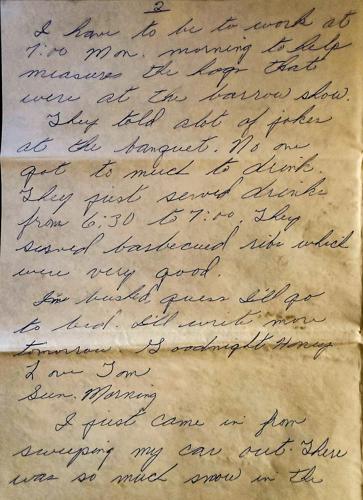 2
I have to be to work at
7:00 Mon. morning to help
measures the hogs that
were at the barrow show.
They told alot of jokes
at the banquet. No one
got to much to drink.
They just served drinks
from 6:30 to 7:00. They
served barbecued ribs which
were very good.
I'm bushed, guess I'll go
to bed. I'll write more
tomorrow. Goodnight Honey
Love Tom
Sun. Morning
I just came in from
sweeping my car out. There
was so much snow in the